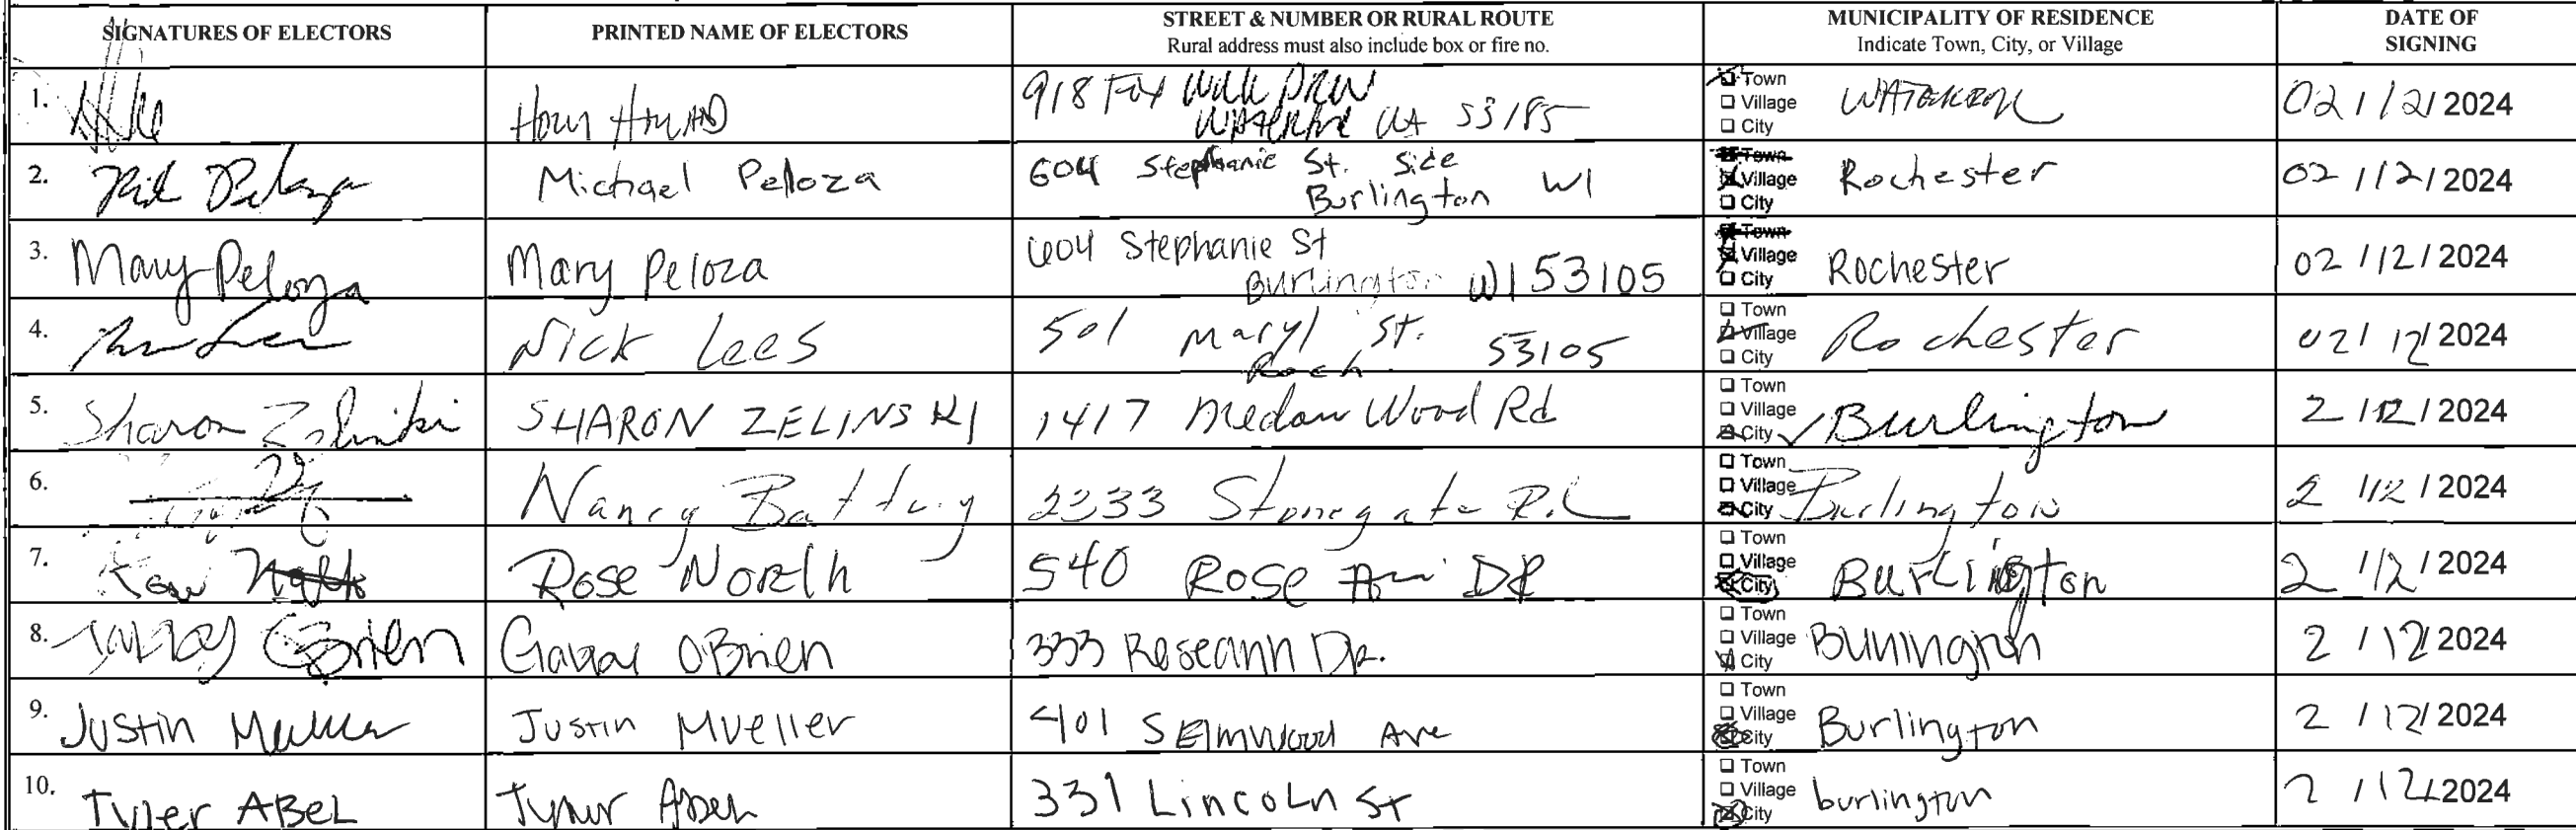 SIGNATURES OF ELECTORS
PRINTED NAME OF ELECTORS
STREET & NUMBER OR RURAL ROUTE
Rural address must also include box or fire no.
MUNICIPALITY OF RESIDENCE
Indicate Town, City, or Village
DATE OF
SIGNING
1.
918 Fox
53185
Town
Village
City
02/12/2024
2.
Peloza
Michael Peloza
604 Stephanie St. Side
Burlington WI
Town
Village
City
Rochester
02/12/2024
3.
Mary Peloza
Mary Peloza
604 Stephanie St
Burlington WI 53105
Town
Village
City
Rochester
02/12/2024
4.
Nick Lees
501 Maryl St.
Roch 53105
Town
Village
City
Rochester
02/12/2024
5.
Sharon Zelinski
SHARON ZELINSKI
1417 Medow Wood Rd
Town
Village
City
Burlington
2/12/2024
6.
Nancy
2333 Stonegate Rd
Town
Village
City
Burlington
2/12/2024
7.
Rose North
540 Rose Ann DR
Town
Village
City
Burlington
2/12/2024
8.
OBrien
OBrien
333 Roseann Dr.
Town
Village
City
Burlington
2/12/2024
9.
Justin Mueller
Justin Mueller
401 S Elmwood Ave
Town
Village
City
Burlington
2/12/2024
10.
Tyler ABEL
Tyler Abel
331 Lincoln St
Town
Village
City
burlington
2/12/2024